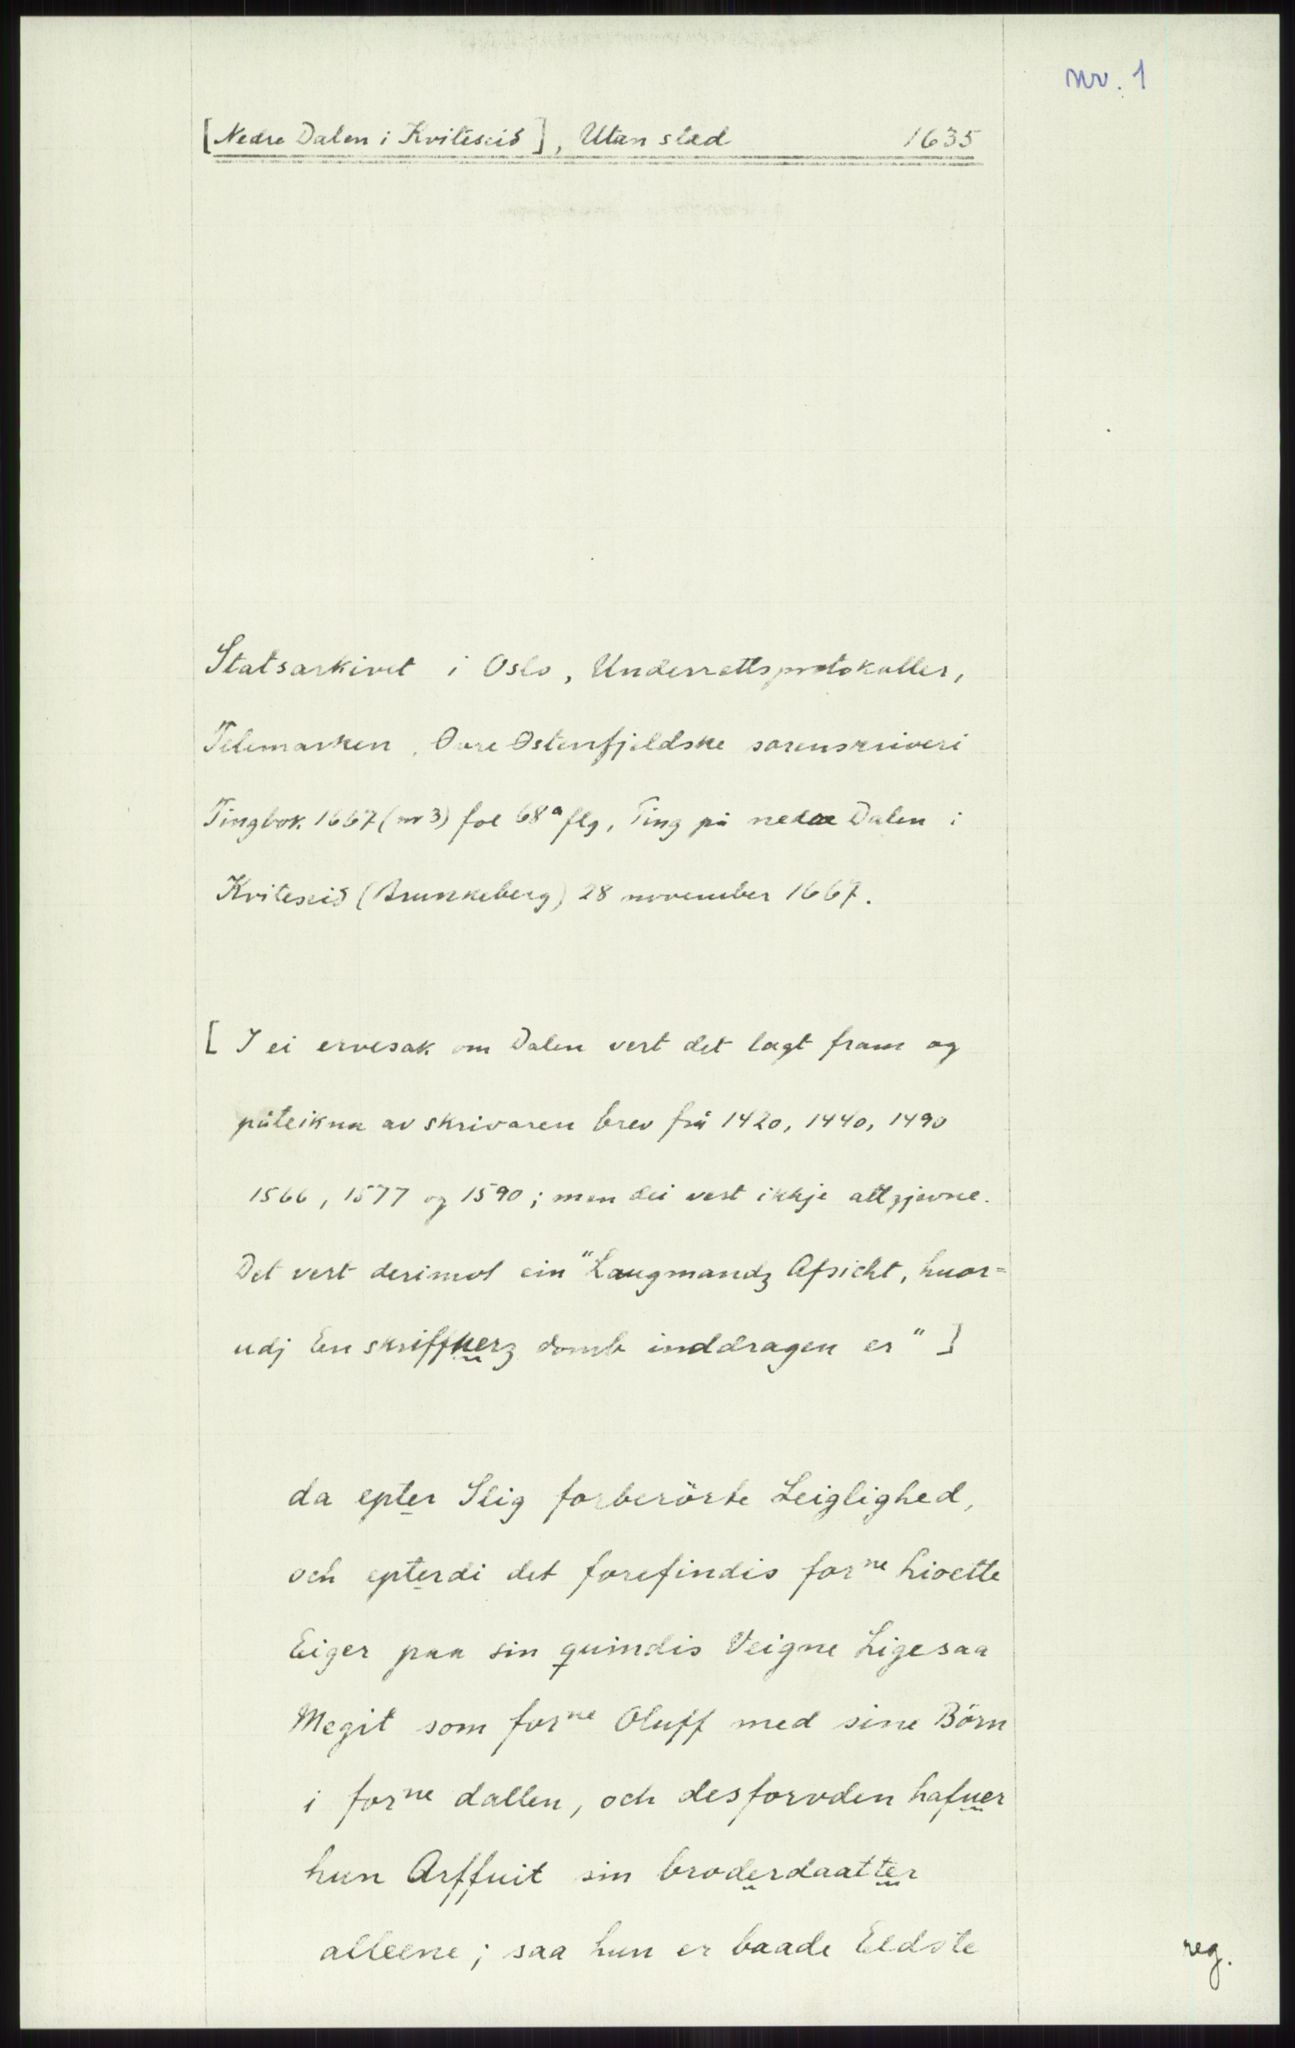 nr. 1
[Nedre Dalen i Kviteseid], Utan stad 1635
Statsarkivet i Oslo, Underrettsprotokoller,
Telemarken, Øvre Østenfjeldske sorenskriveri
Tingbok 1667 (nr 3) fol 68ª flg, Ting på nedre Dalen i
Kviteseid (Brunkeberg) 28 november 1667.
[I ei ervesak om Dalen vert det lagt fram og
påteikna av skrivaren brev frå 1420, 1440, 1490
1566, 1577 og 1590; men dei vert ikkje attgjevne.
Det vert derimot ein "Laugmandz Afsicht, huor=
udj En skriffuerz domb inddragen er"]
da epter Slig forberörte Leiglighed,
och epterdi det forefindis forne Lioette
Eiger paa sin quindis Veigne Ligesaa
Megit som forne Oluff med sine Börn
i forne dallen, och desforvden hafuer
hun Arffuit sin broderdaatter
alleene; saa hun er baade Eldste
reg.